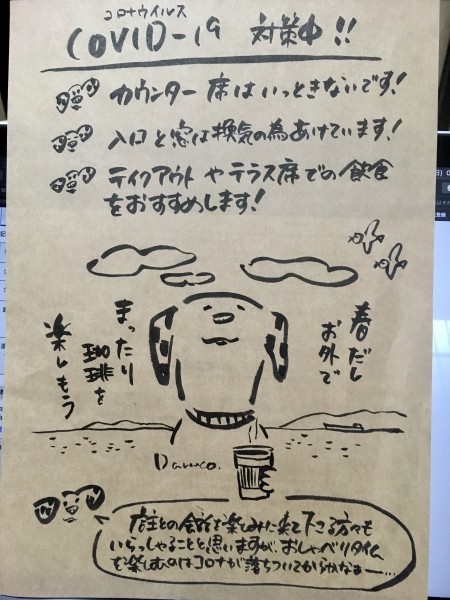 コロナウイルス
COVID-19 対策中!!
カウンター席はいっときないです!
入口と窓は換気の為あけています!
テイクアウトやテラス席での飲食
をおすすめします!
春だし
お外で
まったり
珈琲を
楽しもう
Danco.
店主との会話を楽しみに来て下さる方々も
いらっしゃることと思いますが、おしゃべりタイム
を楽しむのはコロナが落ちついてからかなぁー…